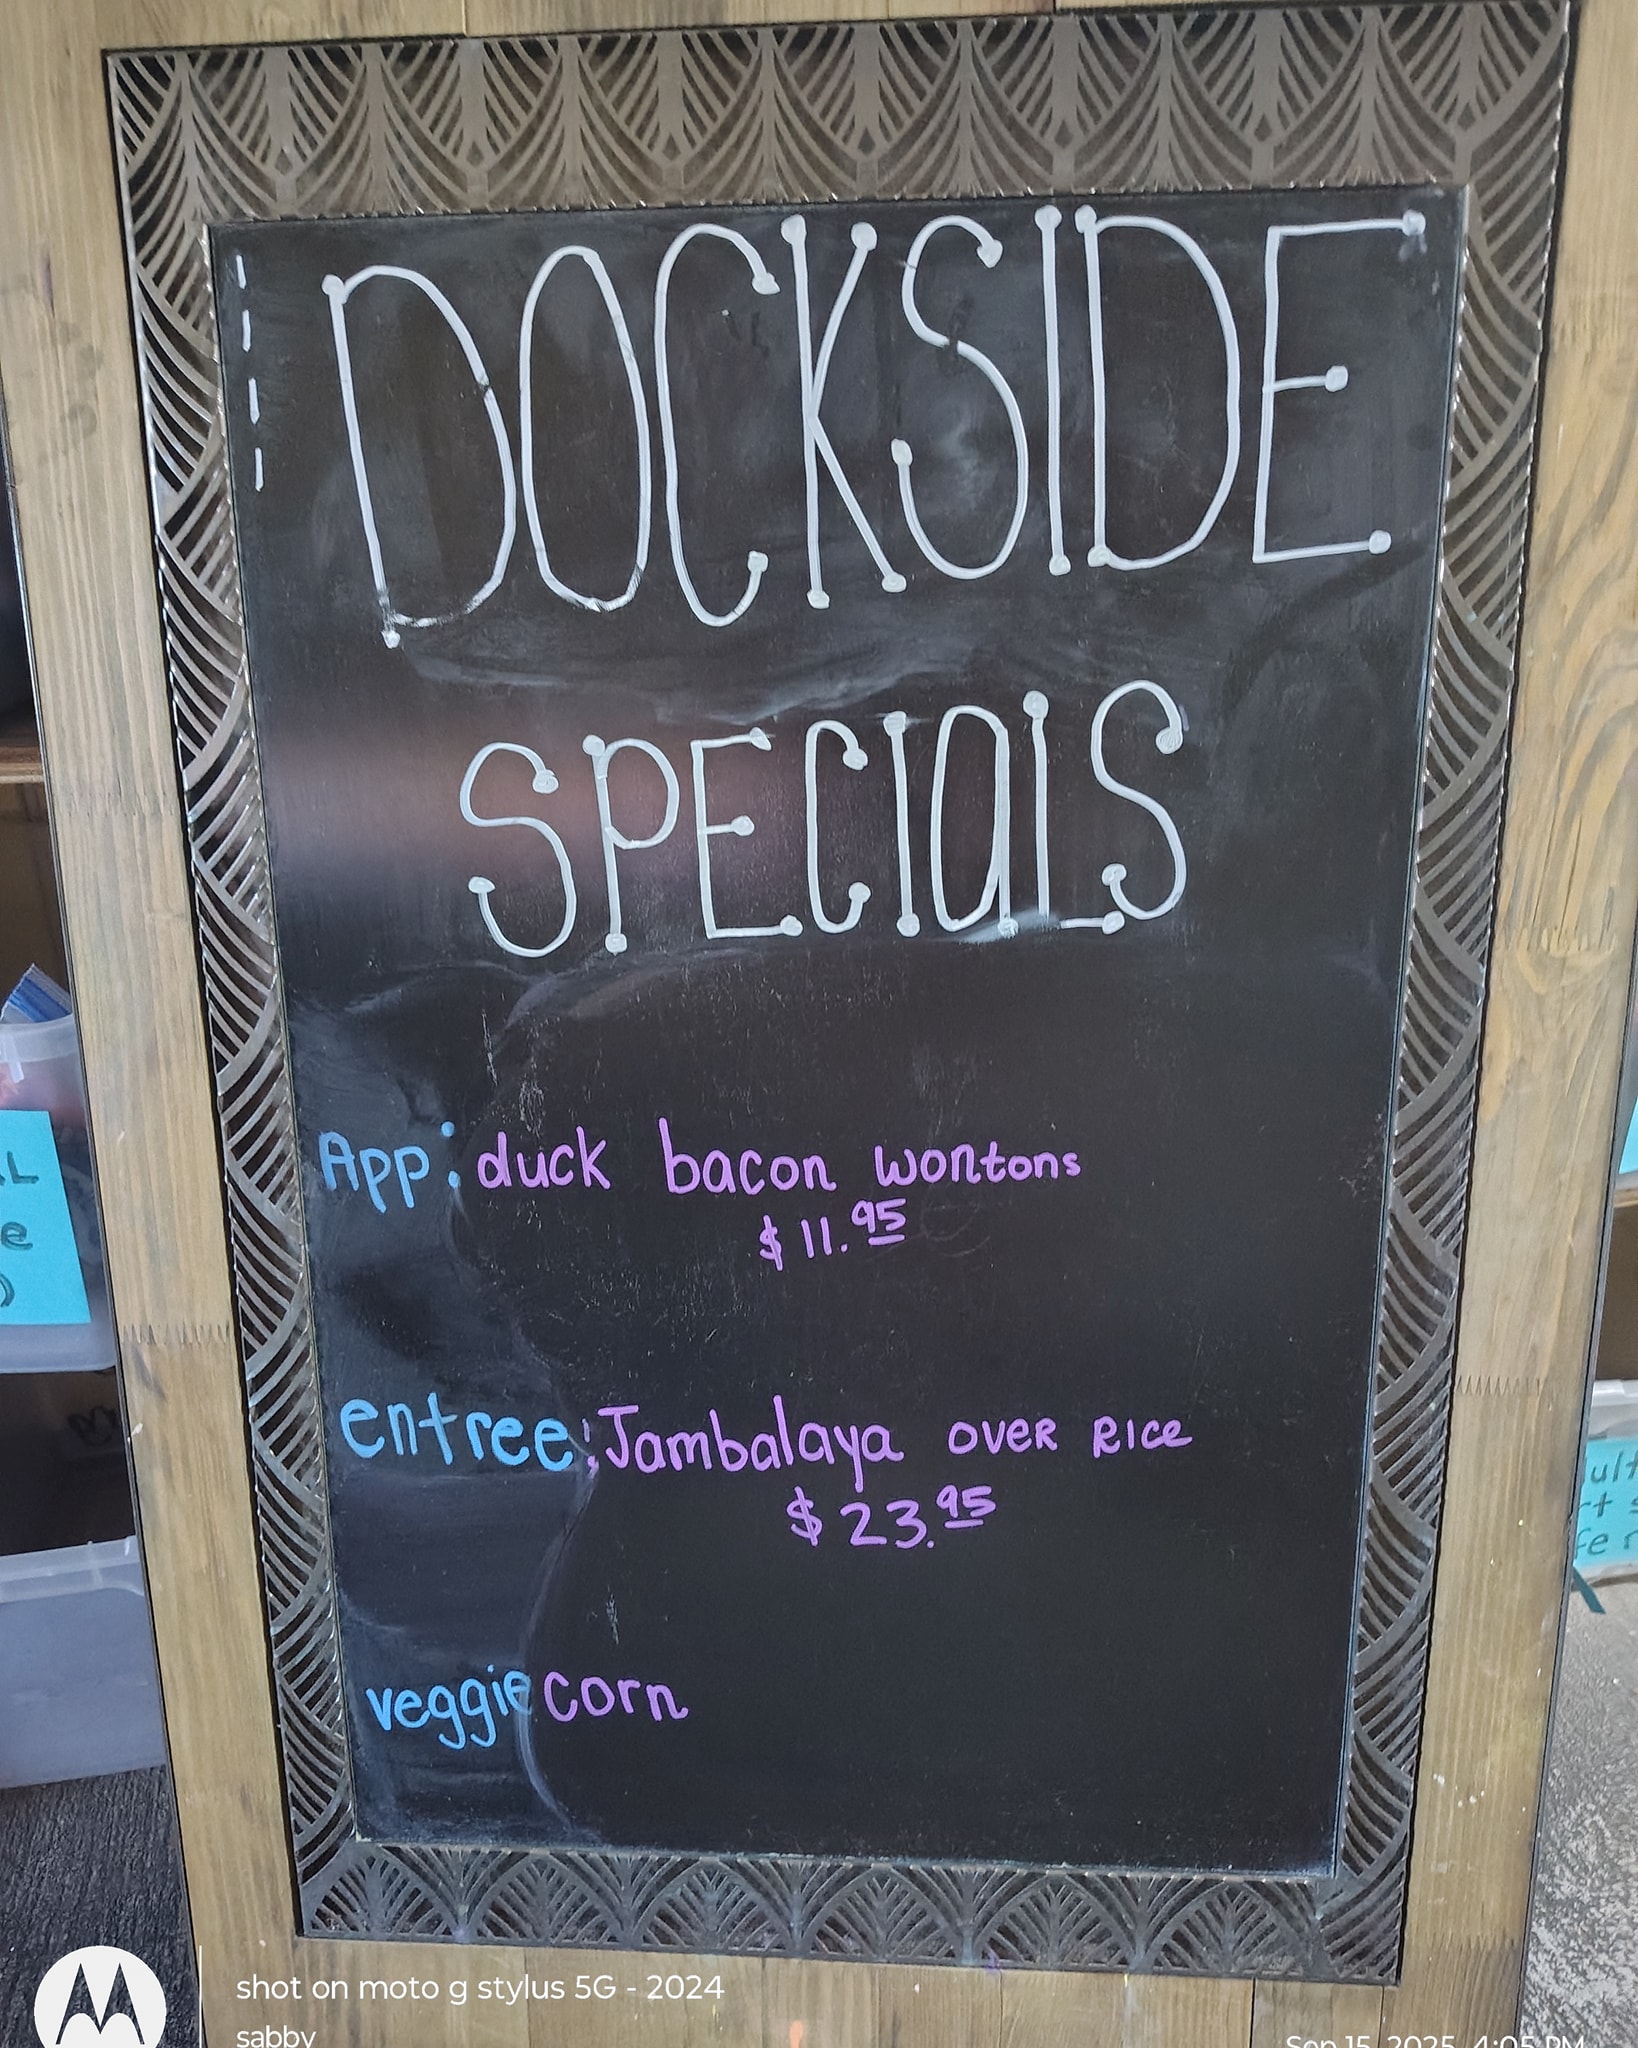 DOCKSIDE
SPECIALS
App: duck bacon wontons
$11.95
entree: Jambalaya over Rice
$23.95
veggie corn
shot on moto g stylus 5G - 2024
sabby
Sep 15, 2025, 4:05 PM